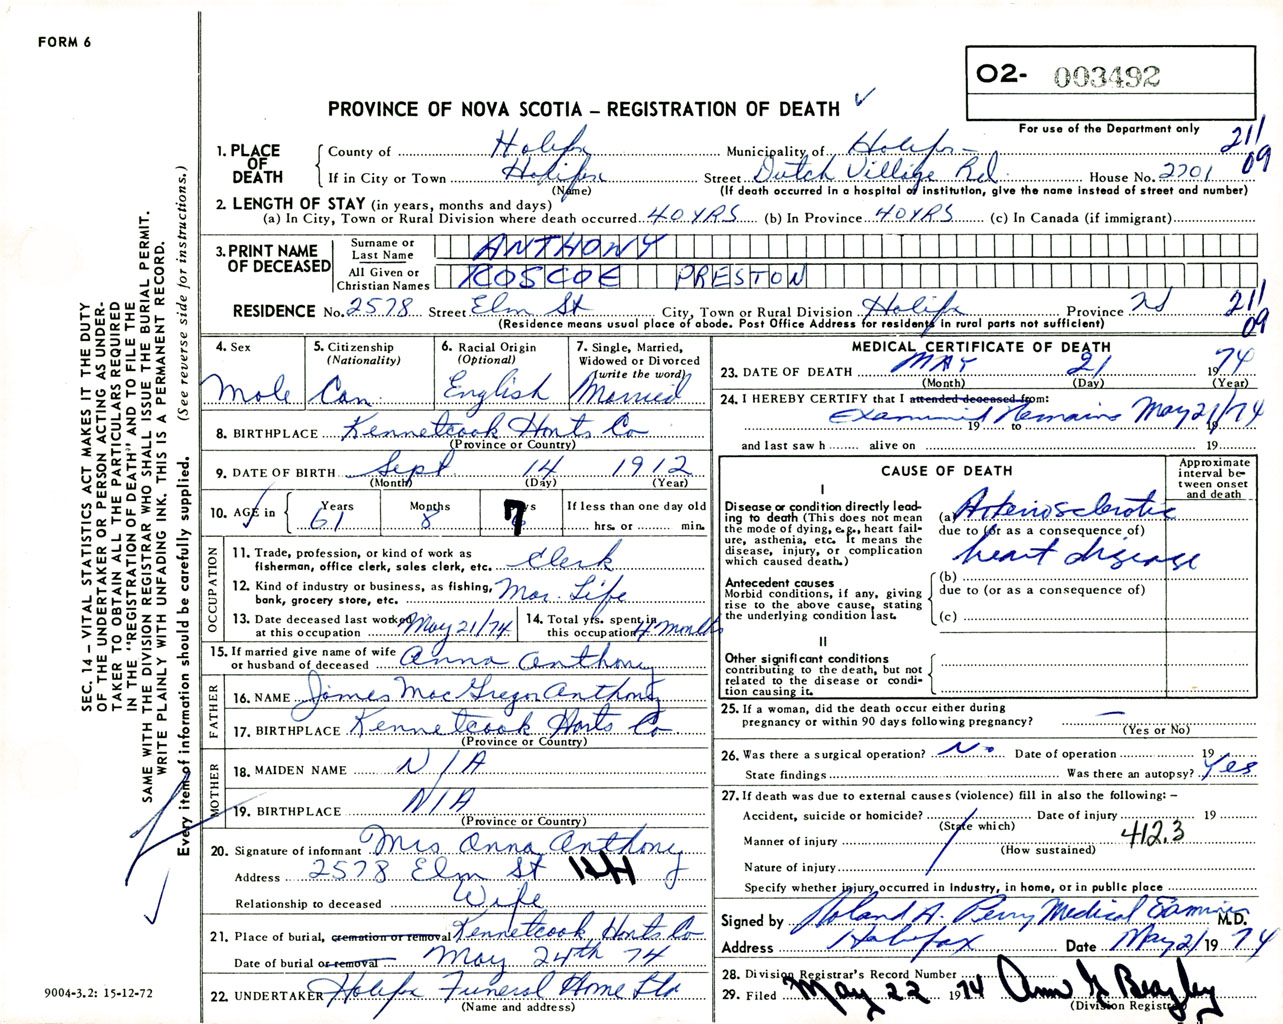 FORM 6
O2- 003492
PROVINCE OF NOVA SCOTIA – REGISTRATION OF DEATH ✓
For use of the Department only
211
09
1. PLACE OF DEATH
County of Halifax Municipality of Halifax
If in City or Town Halifax Street Dutch Village Rd. House No. 2701
(Name) (If death occurred in a hospital or institution, give the name instead of street and number)
2. LENGTH OF STAY (in years, months and days)
(a) In City, Town or Rural Division where death occurred 40 YRS (b) In Province 40 YRS (c) In Canada (if immigrant)
3. PRINT NAME OF DECEASED
Surname or Last Name ANTHONY
All Given or Christian Names ROSCOE PRESTON
RESIDENCE No. 2578 Street Elm St City, Town or Rural Division Halifax Province NS
(Residence means usual place of abode. Post Office Address for residents in rural parts not sufficient)
211
09
4. Sex
Male
5. Citizenship (Nationality)
Can.
6. Racial Origin (Optional)
English
7. Single, Married, Widowed or Divorced (write the word)
Married
8. BIRTHPLACE Kennetcook Hants Co
(Province or Country)
9. DATE OF BIRTH Sept 14 1912
(Month) (Day) (Year)
10. AGE in
Years 61
Months 8
7
If less than one day old
hrs. or min.
OCCUPATION
11. Trade, profession, or kind of work as fisherman, office clerk, sales clerk, etc. Clerk
12. Kind of industry or business, as fishing, bank, grocery store, etc. Mar. Life
13. Date deceased last worked at this occupation May 21/74
14. Total yrs. spent in this occupation 4 months
15. If married give name of wife or husband of deceased Anna Anthony
FATHER
16. NAME James MacGregor Anthony
17. BIRTHPLACE Kennetcook Hants Co
(Province or Country)
MOTHER
18. MAIDEN NAME N/A
19. BIRTHPLACE N/A
(Province or Country)
20. Signature of informant Mrs Anna Anthony
Address 2578 Elm St
Relationship to deceased Wife
21. Place of burial, cremation or removal Kennetcook Hants Co
Date of burial or removal May 24th 74
22. UNDERTAKER Halifax Funeral Home Ltd
(Name and address)
MEDICAL CERTIFICATE OF DEATH
23. DATE OF DEATH MAY 21 1974
(Month) (Day) (Year)
24. I HEREBY CERTIFY that I attended deceased from:
Examined Remains May 21/74
19 to 19
and last saw h alive on 19
CAUSE OF DEATH
Approximate interval between onset and death
I
Disease or condition directly leading to death (This does not mean the mode of dying, e.g., heart failure, asthenia, etc. It means the disease, injury, or complication which caused death.)
(a) Arteriosclerotic
due to (or as a consequence of)
heart disease
Antecedent causes
Morbid conditions, if any, giving rise to the above cause, stating the underlying condition last.
(b)
due to (or as a consequence of)
(c)
II
Other significant conditions
contributing to the death, but not related to the disease or condition causing it.
25. If a woman, did the death occur either during pregnancy or within 90 days following pregnancy? —
(Yes or No)
26. Was there a surgical operation? No Date of operation 19
State findings Was there an autopsy? Yes
27. If death was due to external causes (violence) fill in also the following: –
Accident, suicide or homicide? Date of injury 19
(State which)
Manner of injury 412.3
(How sustained)
Nature of injury
Specify whether injury occurred in Industry, in home, or in public place
Signed by Roland A. Perry Medical Examiner M.D.
Address Halifax Date May 21 1974
28. Division Registrar's Record Number
29. Filed May 22 1974 Ann G Beazley
(Division Registrar)
SEC. 14 – VITAL STATISTICS ACT MAKES IT THE DUTY
OF THE UNDERTAKER OR PERSON ACTING AS UNDER-
TAKER TO OBTAIN ALL THE PARTICULARS REQUIRED
IN THE "REGISTRATION OF DEATH" AND TO FILE THE
SAME WITH THE DIVISION REGISTRAR WHO SHALL ISSUE THE BURIAL PERMIT.
WRITE PLAINLY WITH UNFADING INK. THIS IS A PERMANENT RECORD.
Every item of information should be carefully supplied. (See reverse side for instructions.)
9004-3.2: 15-12-72